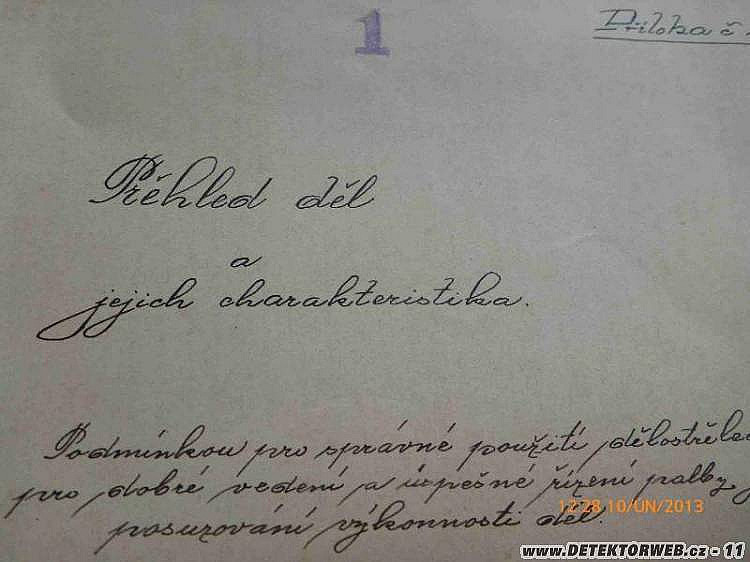 1
Příloha č
Přěhled děl
a
jejich charakteristika.
Podmínkou pro správné použití dělostřelec
pro dobré vedení a úspešné řízení palby
posuzování výkonnosti děl.
12:28 10/ÚN/2013
www.DETEKTORWEB.cz - 11